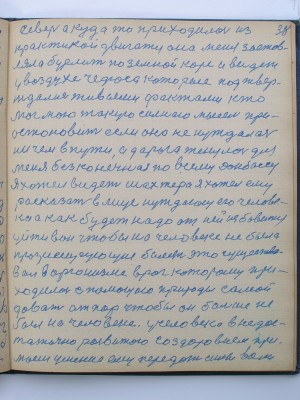 север а куда то приходилось из 38
практикой двигать она меня застав-
ляла бурлить по земной коре и видеть
у воздухе чудеса которые подтвер-
ждали живыми фактами кто
мог мою такую силу мысли при-
остановить если она не нуждалась
ни чем в пути, а дорога тянулась для
меня безконечная по всему Донбассу
Я хотел видеть шахтера я хотел ему
рассказать в лице нуждающегося челове-
ка как будет надо от ней избавиться
уйти вон чтобы на человеке не было
прогрессирующие болезни это существо-
вал в организме враг которому при-
ходилось с помощью природы самой
давать отпор чтобы он больше не
был на человеке. у человека недос-
таточно развитого создаваем при-
мочи ценение ему передать силы воли